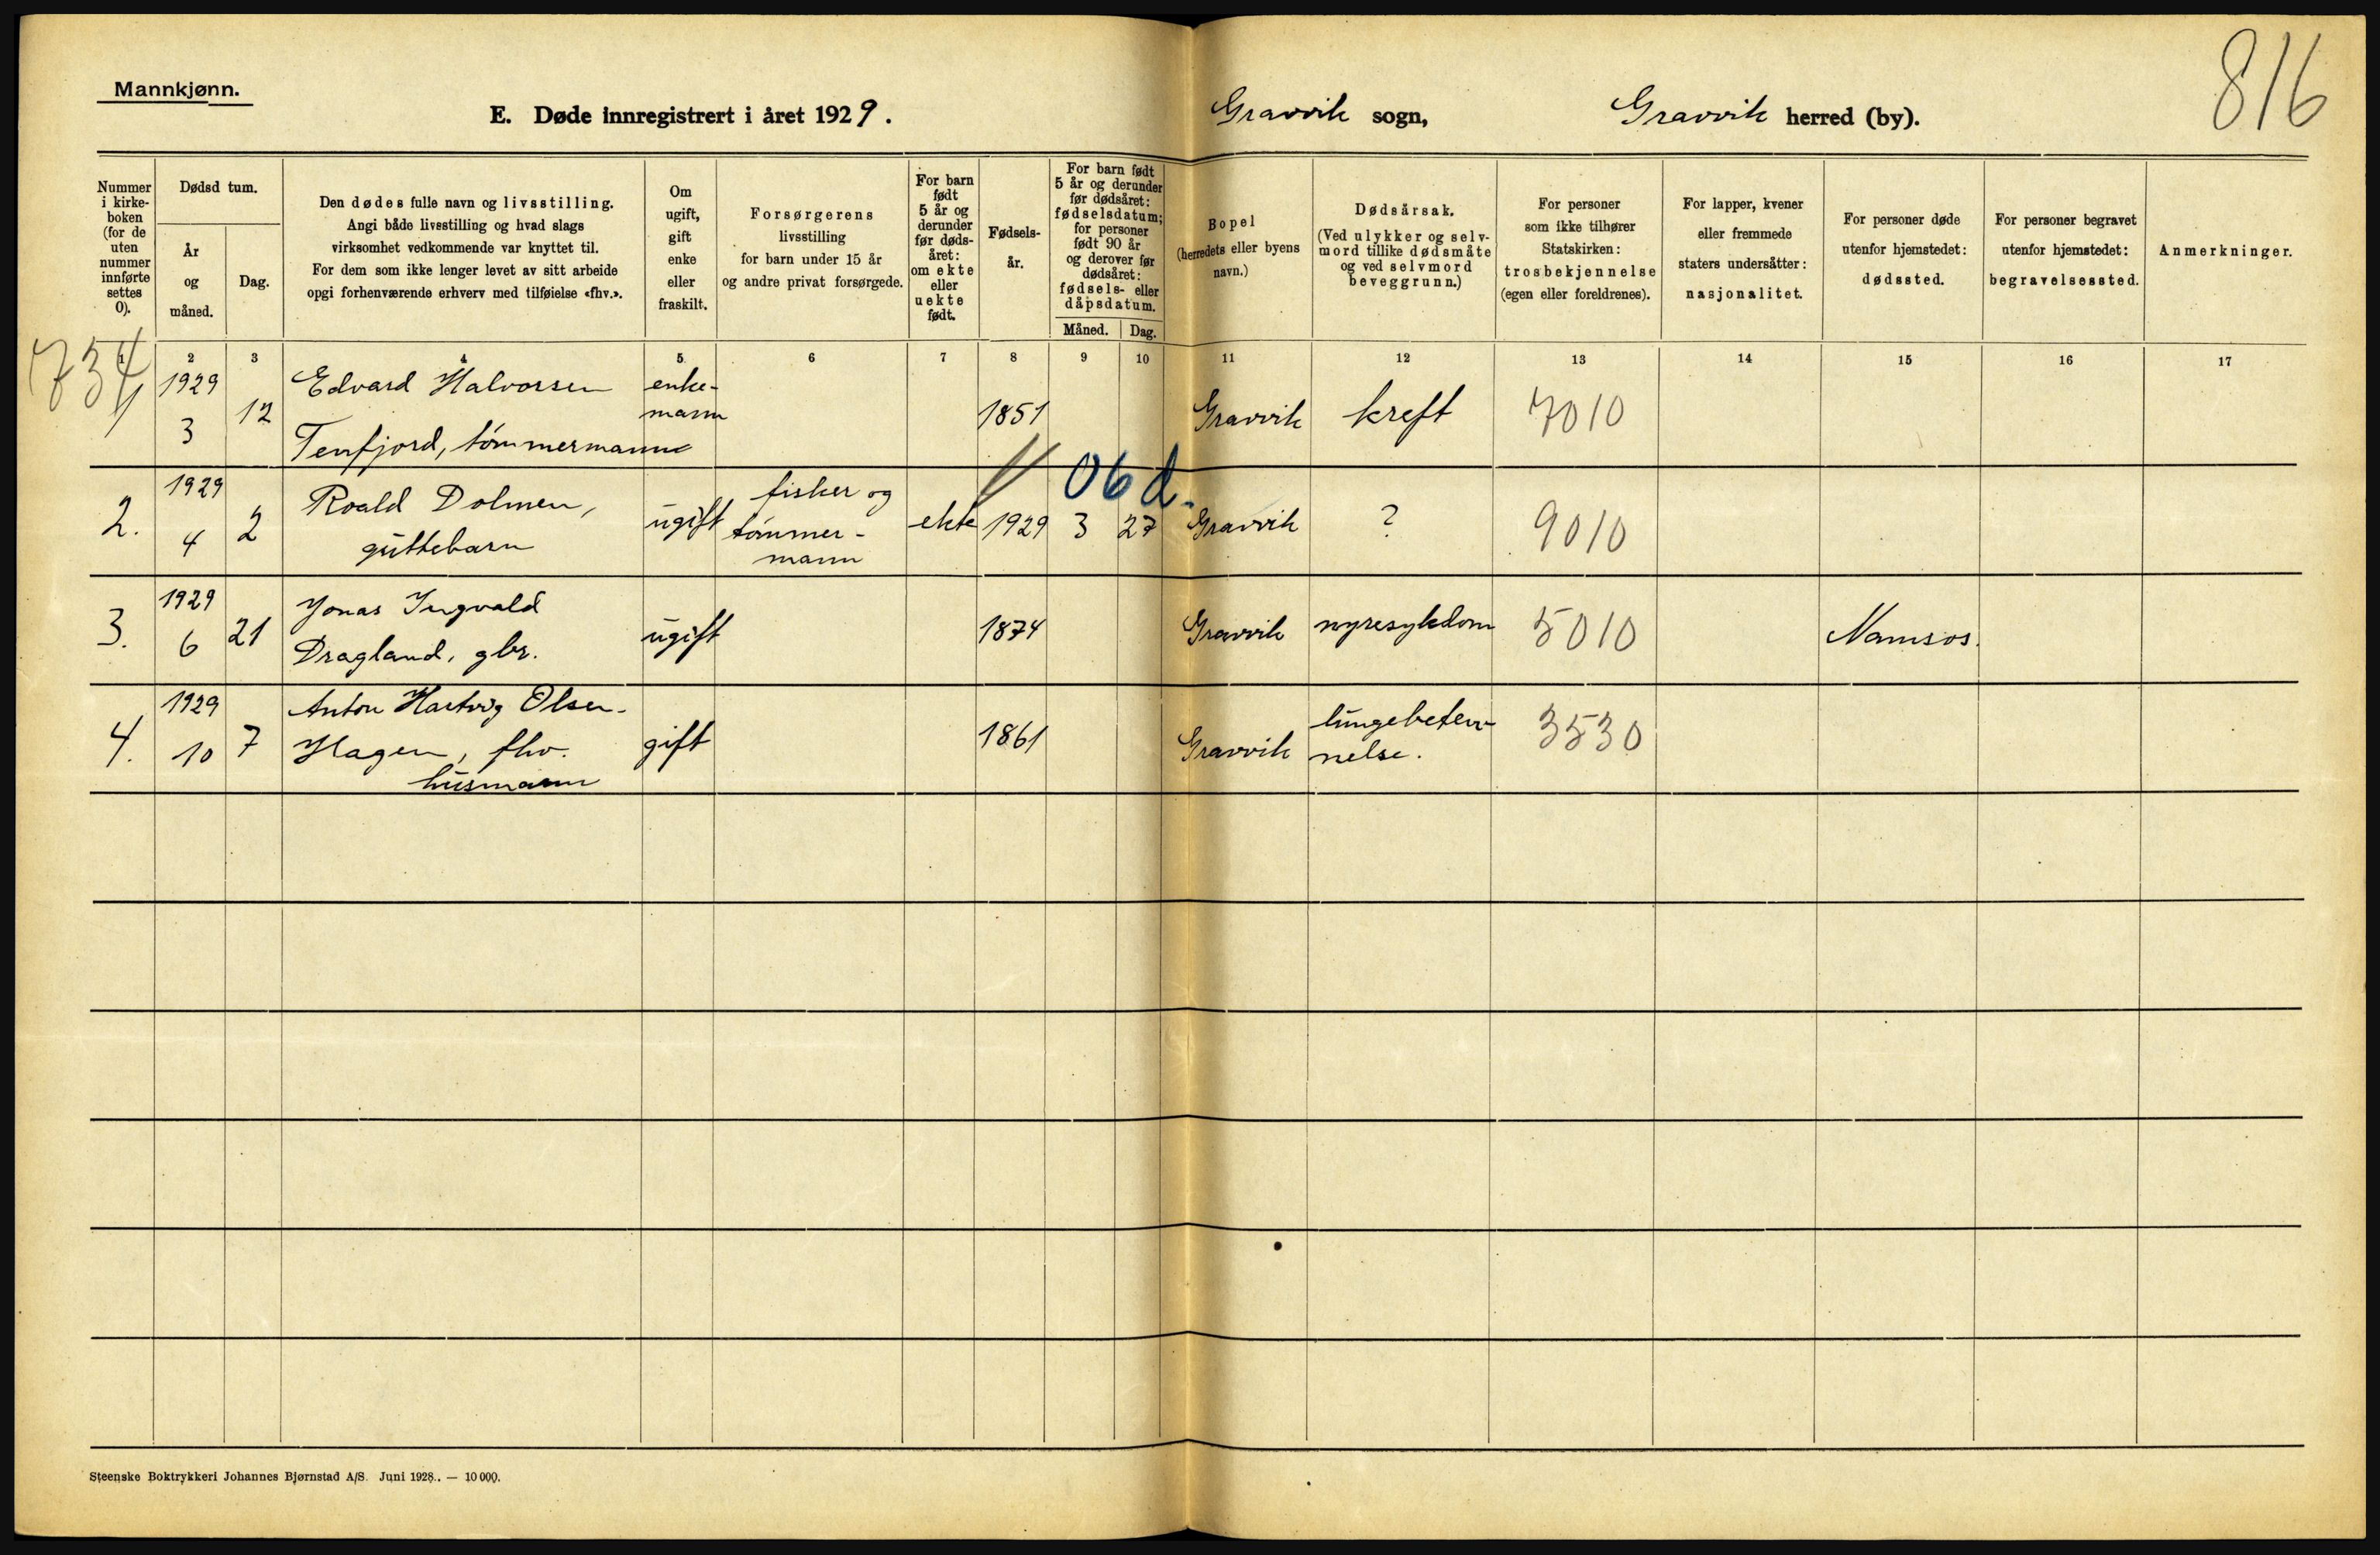 Mannkjønn.
E. Døde innregistrert i året 1929.
Gravvik sogn, Gravvik herred (by).
816
Nummer i kirke-boken (for de uten nummer innførte settes 0).
Dødsd tum.
År og måned.
Dag.
Den dødes fulle navn og livsstilling.
Angi både livsstilling og hvad slags
virksomhet vedkommende var knyttet til.
For dem som ikke lenger levet av sitt arbeide
opgi forhenværende erhverv med tilføielse «fhv.».
Om ugift, gift enke eller fraskilt.
Forsørgerens
livsstilling
for barn under 15 år
og andre privat forsørgede.
For barn født 5 år og derunder før døds-året: om ekte eller uekte født.
Fødsels-år.
For barn født 5 år og derunder før dødsåret: fødselsdatum; for personer født 90 år og derover før dødsåret: fødsels- eller dåpsdatum.
Måned. Dag.
Bopel
(herredets eller byens
navn.)
Dødsårsak.
(Ved ulykker og selv-
mord tillike dødsmåte
og ved selvmord
beveggrunn.)
For personer
som ikke tilhører
Statskirken:
trosbekjennelse
(egen eller foreldrenes).
For lapper, kvener
eller fremmede
staters undersåtter:
nasjonalitet.
For personer døde
utenfor hjemstedet:
dødssted.
For personer begravet
utenfor hjemstedet:
begravelsessted.
Anmerkninger.
1 2 3 4 5 6 7 8 9 10 11 12 13 14 15 16 17
734
1 1929 3 12 Edvard Halvorsen
Tenfjord, tømmermann
enke-
mann
1851 Gravvik kreft 7010
06 d.
2. 1929 4 2 Roald Dolmen,
guttebarn
ugift
fisker og
tømmer-
mann
ekte 1929 3 27 Gravvik ? 9010
3. 1929 6 21 Jonas Ingvald
Dragland, gbr.
ugift 1874 Gravvik nyresykdom 5010 Namsos.
4. 1929 10 7 Anton Hartvig Olsen-
Hagen, fhv.
husmann
gift 1861 Gravvik
lungebeten-
nelse.
3530
Steenske Boktrykkeri Johannes Bjørnstad A/S. Juni 1928.. — 10 000.